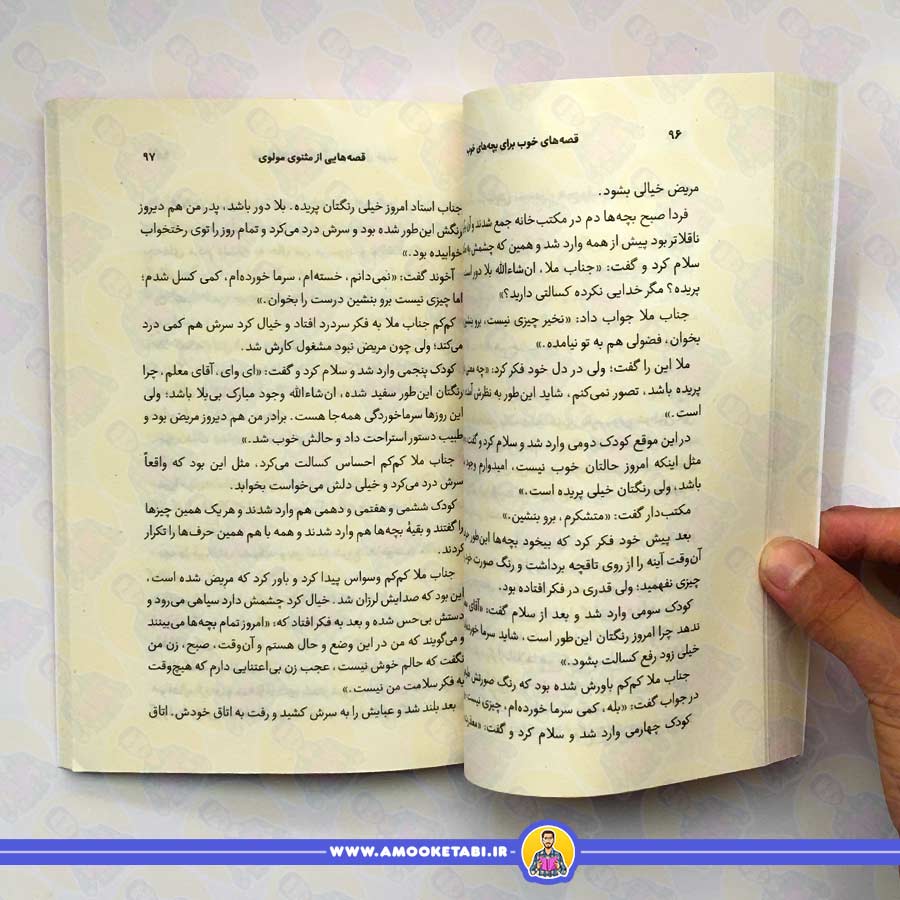 ۹۶
قصه‌های خوب برای بچه‌های خوب
مریض خیالی بشود.
فردا صبح بچه‌ها دم در مکتب‌خانه جمع شدند و آن
ناقلاتر بود پیش از همه وارد شد و همین که چشمش به
سلام کرد و گفت: «جناب ملا، ان‌شاءالله بلا دور است
پریده؟ مگر خدایی نکرده کسالتی دارید؟»
جناب ملا جواب داد: «نخیر چیزی نیست، برو بنشین
بخوان، فضولی هم به تو نیامده.»
ملا این را گفت؛ ولی در دل خود فکر کرد: «چه
پریده باشد، تصور نمی‌کنم، شاید این‌طور به نظرش آمده
است.»
در این موقع کودک دومی وارد شد و سلام کرد و گفت:
مثل اینکه امروز حالتان خوب نیست، امیدوارم وجود
باشد، ولی رنگتان خیلی پریده است.»
مکتب‌دار گفت: «متشکرم، برو بنشین.»
بعد پیش خود فکر کرد که بیخود بچه‌ها این‌طور
آن‌وقت آینه را از روی تاقچه برداشت و رنگ صورت
چیزی نفهمید؛ ولی قدری در فکر افتاده بود.
کودک سومی وارد شد و بعد از سلام گفت: «آقای
ندهد چرا امروز رنگتان این‌طور است، شاید سرما خورده
خیلی زود رفع کسالت بشود.»
جناب ملا کم‌کم باورش شده بود که رنگ صورتش
در جواب گفت: «بله، کمی سرما خورده‌ام، چیزی نیست
کودک چهارمی وارد شد و سلام کرد و گفت:
قصه‌هایی از مثنوی مولوی
۹۷
جناب استاد امروز خیلی رنگتان پریده. بلا دور باشد، پدر من هم دیروز
رنگش این‌طور شده بود و سرش درد می‌کرد و تمام روز را توی رختخواب
خوابیده بود.»
آخوند گفت: «نمی‌دانم، خسته‌ام، سرما خورده‌ام، کمی کسل شدم؛
اما چیزی نیست برو بنشین درست را بخوان.»
کم‌کم جناب ملا به فکر سردرد افتاد و خیال کرد سرش هم کمی درد
می‌کند؛ ولی چون مریض نبود مشغول کارش شد.
کودک پنجمی وارد شد و سلام کرد و گفت: «ای وای، آقای معلم، چرا
رنگتان این‌طور سفید شده، ان‌شاءالله وجود مبارک بی‌بلا باشد؛ ولی
این روزها سرماخوردگی همه‌جا هست. برادر من هم دیروز مریض بود و
طبیب دستور استراحت داد و حالش خوب شد.»
جناب ملا کم‌کم احساس کسالت می‌کرد، مثل این بود که واقعاً
سرش درد می‌کرد و خیلی دلش می‌خواست بخوابد.
کودک ششمی و هفتمی و دهمی هم وارد شدند و هریک همین چیزها
را گفتند و بقیهٔ بچه‌ها هم وارد شدند و همه با هم همین حرف‌ها را تکرار
کردند.
جناب ملا کم‌کم وسواس پیدا کرد و باور کرد که مریض شده است،
این بود که صدایش لرزان شد. خیال کرد چشمش دارد سیاهی می‌رود و
دستش بی‌حس شده و بعد به فکر افتاد که: «امروز تمام بچه‌ها می‌بینند
و می‌گویند که من در این وضع و حال هستم و آن‌وقت، صبح، زن من
نگفت که حالم خوش نیست، عجب زن بی‌اعتنایی دارم که هیچ‌وقت
به فکر سلامت من نیست.»
بعد بلند شد و عبایش را به سرش کشید و رفت به اتاق خودش. اتاق
WWW.AMOOKETABI.IR